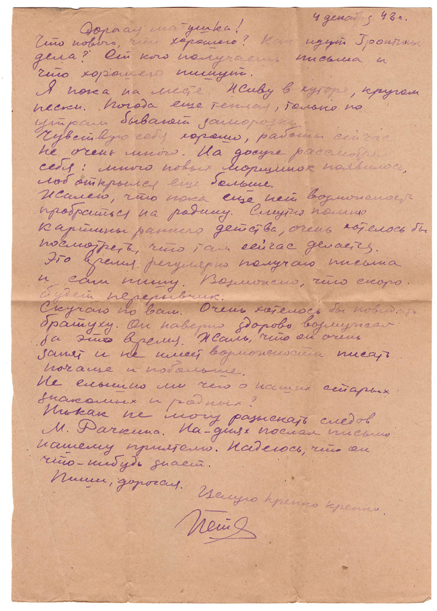 4 декабря 43 г.
Дорогая матушка!
Что нового, что хорошего? Как идут
дела? От кого получаешь письма и
что хорошего пишут.
Я пока на месте. Живу в хуторе, кругом
пески. Погода еще теплая, только по
утрам бывают заморозки.
Чувствую себя хорошо, работы сейчас
не очень много. На досуге рассмотрел
себя: много новых морщинок появилось,
лоб открылся еще больше.
Жалею, что пока еще нет возможности
пробраться на родину. Смутно помню
картины раннего детства, очень хотелось бы
посмотреть, что там сейчас делается.
Это время регулярно получаю письма
и сам пишу. Возможно, что скоро
будет перерывчик.
Скучаю по вам. Очень хотелось бы повидать
братуху. Он наверно здорово возмужал
за это время. Жаль, что он очень
занят и не имеет возможности писать
почаще и побольше.
Не слышно ли чего о наших старых
знакомых и родных?
Никак не могу разыскать следов
М. Рачкина. На-днях послал письмо
нашему приятелю. Надеюсь, что он
что-нибудь знает.
Пиши, дорогая.
Целую крепко крепко.
Петя